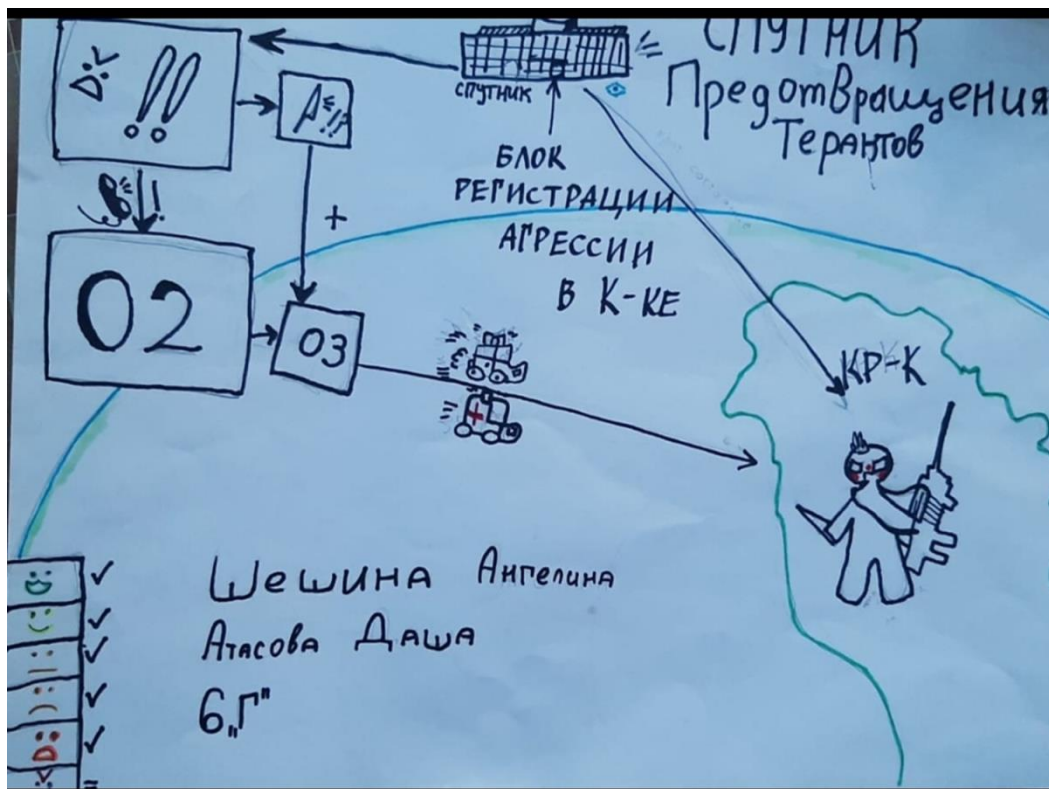 СПУТНИК
Предотвращения
Терактов
СПУТНИК
БЛОК
РЕГИСТРАЦИИ
АГРЕССИИ
В К-КЕ
!!
!
+
02
03
КР-К
Шешина Ангелина
Атасова Даша
6„Г"